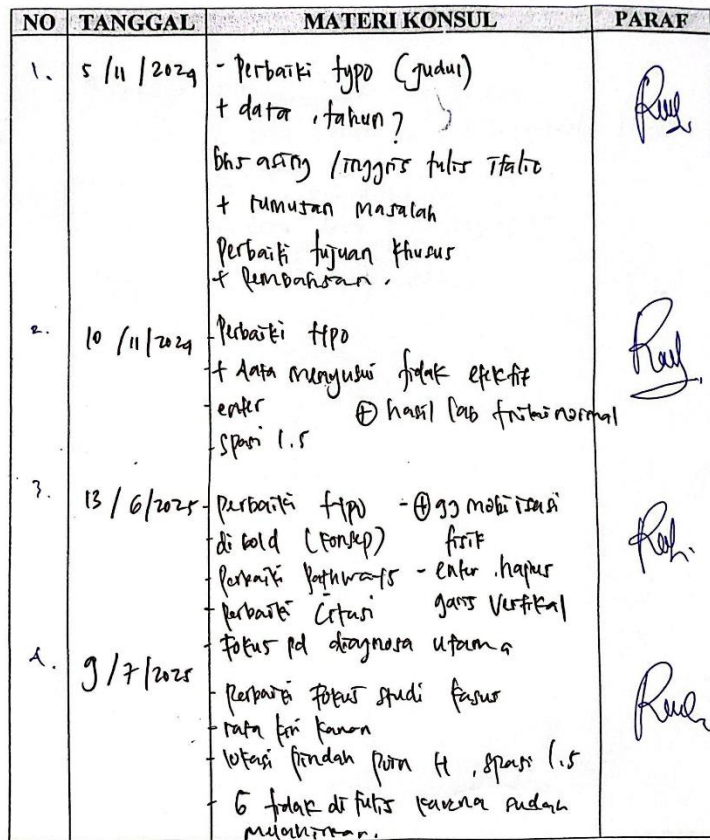 NO TANGGAL MATERI KONSUL PARAF
1. 5/11/2024 - Perbaiki typo (judul)
+ data, tahun?
bhs asing / inggris tulis italic
+ rumusan masalah
Perbaiki tujuan khusus
+ Pembahasan.
2. 10/11/2024 - Perbaiki typo
+ data menyusui tidak efektif
- enter ⊕ hasil lab normal
- spasi 1.5
3. 13/6/2025 - perbaiki typo - ⊕ gg mobilisasi
di bold (konsep) fisik
perbaiki pathways - enter, hapus
- perbaiki citasi garis vertikal
- Fokus pd diagnosa utama
4. 9/7/2025
- perbaiki Fokus studi kasus
- rata kiri kanan
- lokasi pindah poin H, spasi 1.5
- 6 tidak di tulis karena sudah
melahirkan.